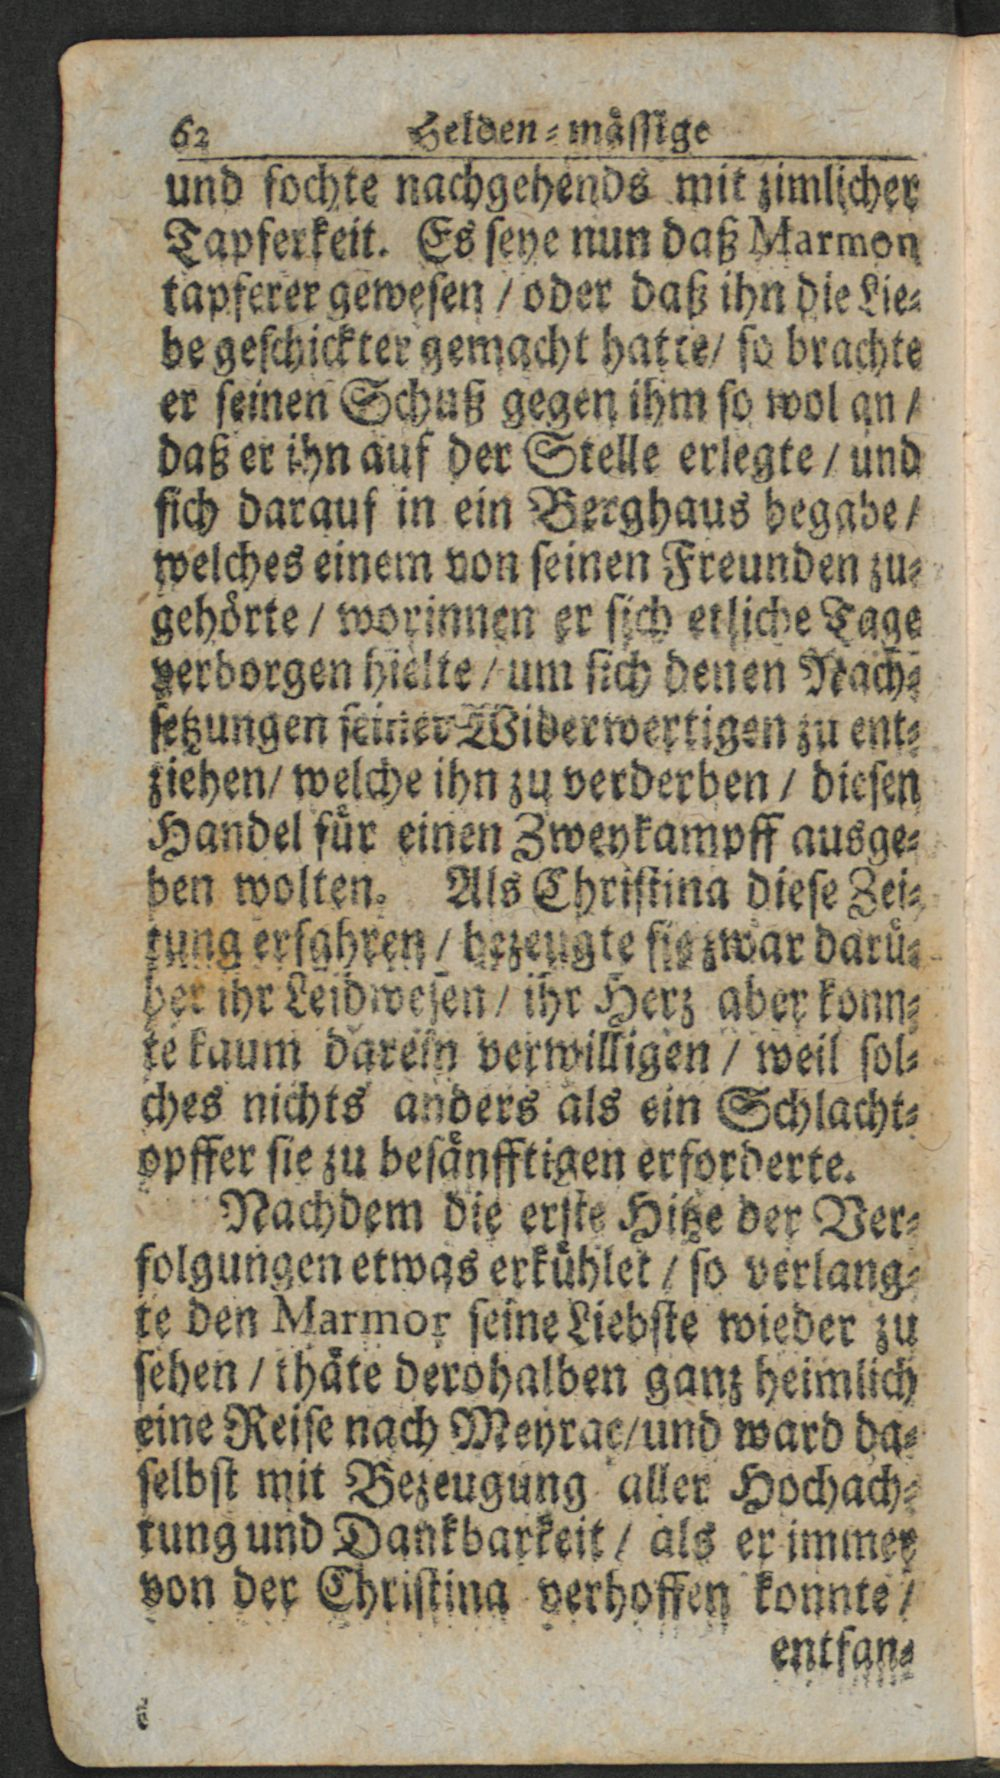 62 Helden-mässige
und fochte nachgehends mit zimlicher
Tapferkeit. Es seye nun daß Marmon
tapferer gewesen / oder daß ihn die Lie-
be geschickter gemacht hatte / so brachte
er seinen Schuß gegen ihm so wol an /
daß er ihn auf der Stelle erlegte / und
sich darauf in ein Berghaus begabe /
welches einem von seinen Freunden zu-
gehörte / worinnen er sich etliche Tage
verborgen hielte / um sich denen Nach-
setzungen seiner Widerwertigen zu ent-
ziehen / welche ihn zu verderben / diesen
Handel für einen Zweykampff ausge-
ben wolten. Als Christina diese Zei-
tung erfahren / bezeugte sie zwar darü-
ber ihr Leidwesen / ihr Herz aber konn-
te kaum darein verwilligen / weil sol-
ches nichts anders als ein Schlacht-
opffer sie zu besänfftigen erforderte.
Nachdem die erste Hitze der Ver-
folgungen etwas erkühlet / so verlang-
te den Marmor seine Liebste wieder zu
sehen / thäte derohalben ganz heimlich
eine Reise nach Meyrac / und ward da-
selbst mit Bezeugung aller Hochach-
tung und Dankbarkeit / als er immer
von der Christina verhoffen konnte /
entfan-